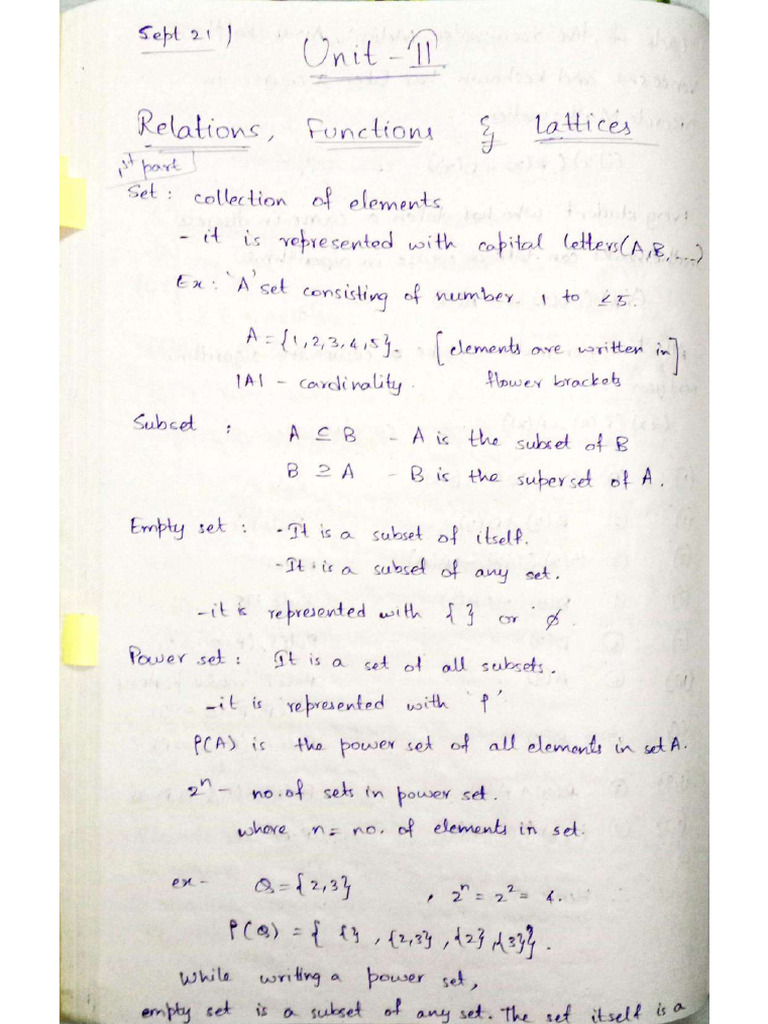 Sept 21)
Unit - II
Relations, Functions & Lattices
1st part
Set : collection of elements
- it is represented with capital letters (A, B, ....)
Ex : 'A' set consisting of number 1 to ≤5.
A = {1, 2, 3, 4, 5}. [elements are written in]
|A| - cardinality. flower brackets
Subset : A ⊆ B - A is the subset of B
B ⊇ A - B is the superset of A.
Empty set : - It is a subset of itself.
- It is a subset of any set.
- it is represented with { } or 'ø'.
Power set : It is a set of all subsets.
- it is represented with 'P'
P(A) is the power set of all elements in set A.
2ⁿ - no. of sets in power set.
where n = no. of elements in set.
ex - Q = {2,3} , 2ⁿ = 2² = 4.
P(Q) = { {}, {2,3}, {2}, {3}}.
While writing a power set,
empty set is a subset of any set. The set itself is a